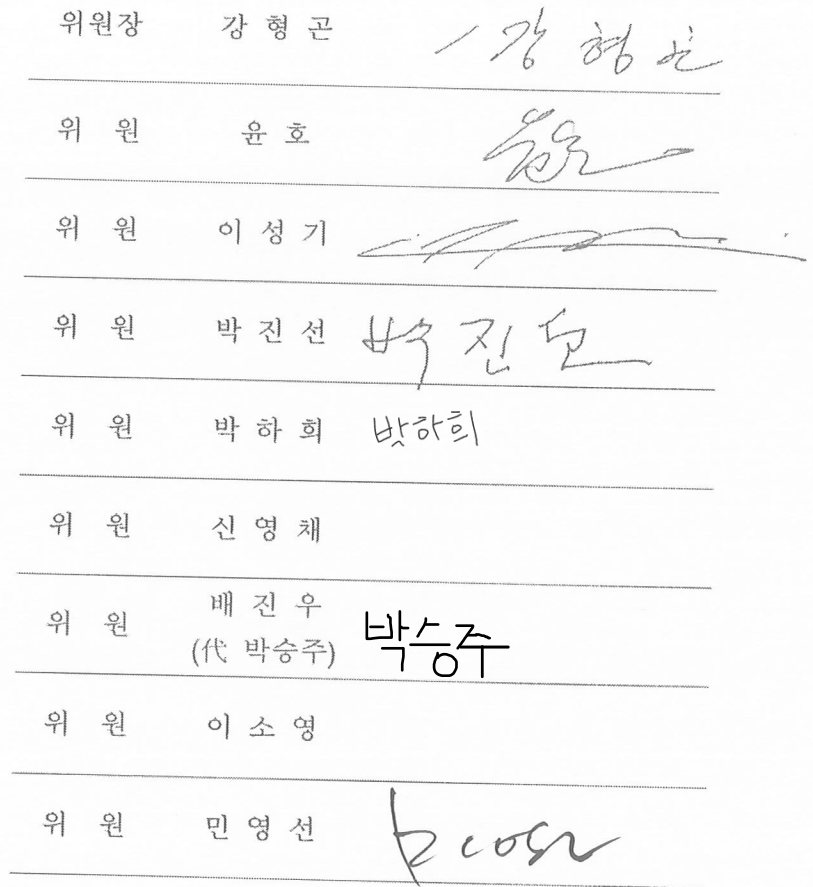 위원장 강 형 곤 강 형 곤
위 원 윤 호
위 원 이 성 기
위 원 박 진 선 박 진 선
위 원 박 하 희 박하희
위 원 신 영 채
위 원 배 진 우
(代 박승주) 박승주
위 원 이 소 영
위 원 민 영 선